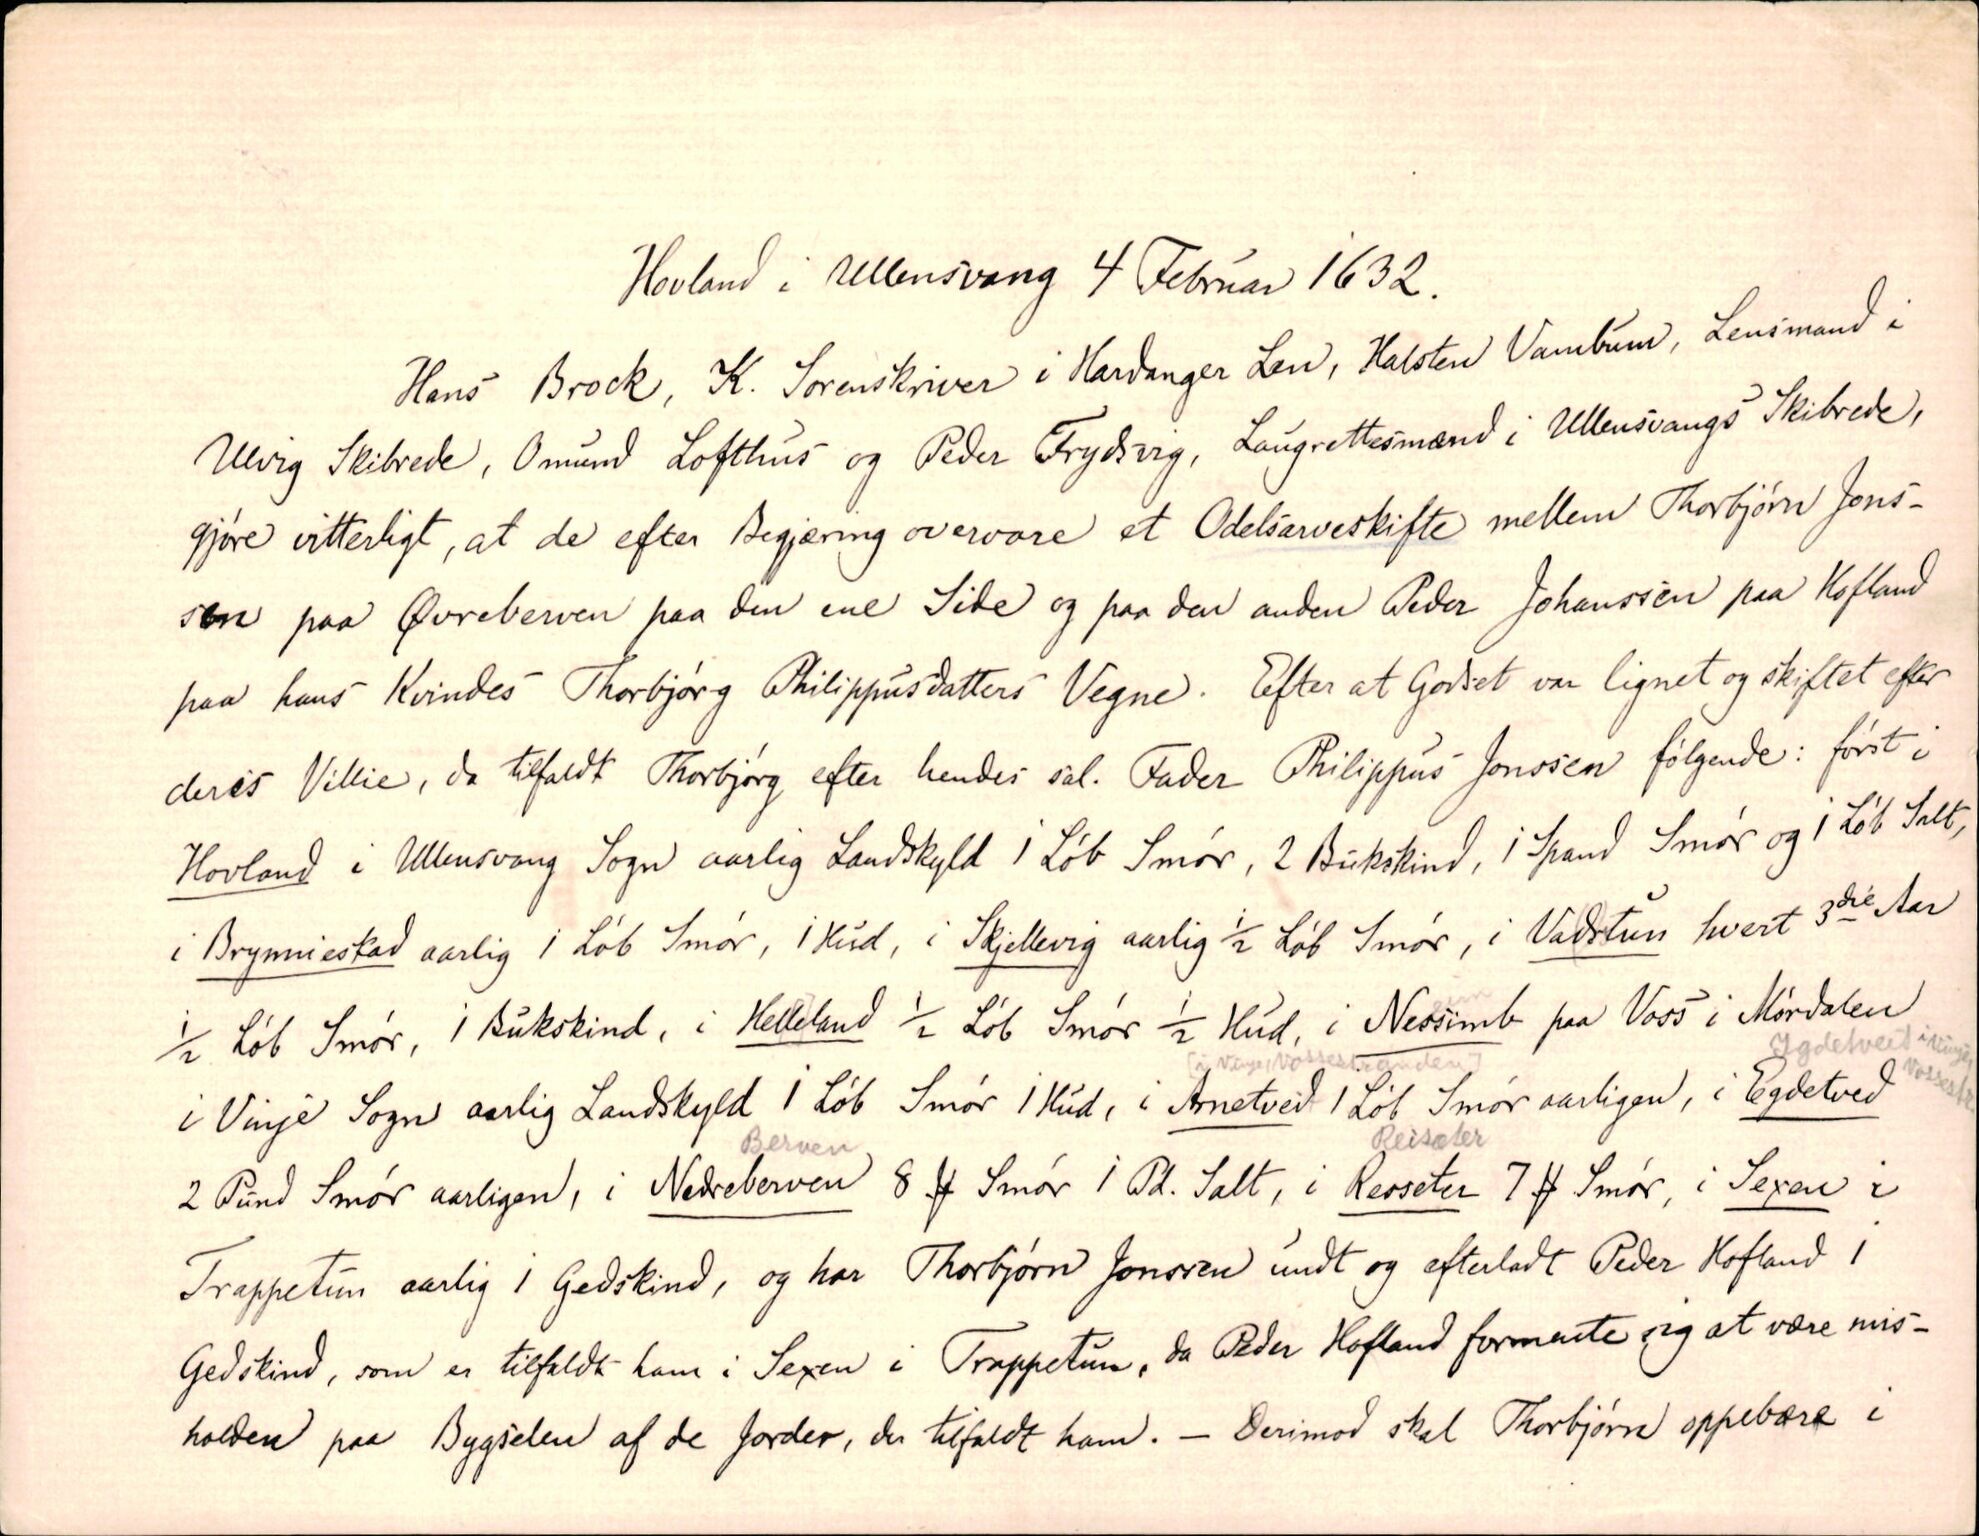 Hovland i Ullensvang 4 Februar 1632.
Hans Brock, K. Sorenskriver i Hardanger Len, Halsten Vambum, Lensmand i
Ulvig Skibrede, Omund Lofthus og Peder Frydsvig, Laugrettesmænd i Ullensvangs Skibrede,
gjøre vitterligt, at de efter Begjæring overvare et Odelsarveskifte mellem Thorbjørn Jons-
sen paa Øvreberven paa den ene Side og paa den anden Peder Johanssen paa Hofland
paa hans Kvindes Thorbjørg Philippusdatters Vegne. Efter at Godset var lignet og skiftet efter
deres Villie, da tilfaldt Thorbjørg efter hendes sal. Fader Philippus Jonssen følgende: først i
Hovland i Ullensvang Sogn aarlig Landskyld 1 Løb Smør, 2 Bukskind, 1 Spand Smør og 1 Løb Salt,
i Brynnieskad aarlig 1 Løb Smør, 1 Hud, i Skjellevig aarlig 1/2 Løb Smør, i Vadstun hvert 3die Aar
1/2 Løb Smør, 1 Bukskind, i Helleland 1/2 Løb Smør 1/2 Hud, i Nessimb paa Voss i Mørdalen
[i Vinje, Vossestranden] Ygdetveit i Vinje, Vossestr.
i Vinje Sogn aarlig Landskyld 1 Løb Smør 1 Hud, i Arnetved 1 Løb Smør aarligen, i Egdetved
Berven Reisæter
2 Pund Smør aarligen, i Nedreberven 8 ℔ Smør 1 Pd. Salt, i Resseter 7 ℔ Smør, i Sexen i
Trappetun aarlig 1 Gedskind, og har Thorbjørn Jonssen undt og efterladt Peder Hofland 1
Gedskind, som er tilfaldt ham i Sexen i Trappetun, da Peder Hofland formente sig at være mis-
holden paa Bygselen af de Jorder, der tilfaldt ham. — Derimod skal Thorbjørn oppebære i